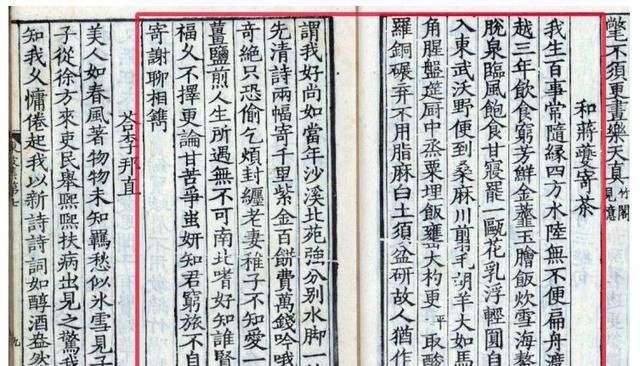 氅不須更畫樂天真 竹閣見憶
和蔣夔寄茶
我生百事常隨緣四方水陸無不便扁舟渡
越三年飲食窮芳鮮金虀玉膾飯炊雪海螯
脫泉臨風飽食甘寢罷一甌花乳浮輕圓自
入東武沃野便到桑麻川翦毛胡羊大如馬
角腥盤筵厨中蒸粟埋飯甕大杓更平取酸
羅銅碾弃不用脂麻白土須盆研故人猶作
謂我好尚如當年沙溪北苑強分別水脚一
先清詩兩幅寄千里紫金百餅費萬錢吟哦
奇絶只恐偷乞煩封纏老妻稚子不知愛一
薑鹽煎人生所遇無不可南北嗜好知誰賢
福乆不擇更論甘苦爭蚩妍知君窮旅不自
寄謝聊相鐫
荅李邦直
美人如春風著物物未知羈愁似氷雪見子
子從徐方來吏民舉熙熙扶病出見之驚我
知我乆慵倦起我以新詩詩詞如醇酒盎然
九